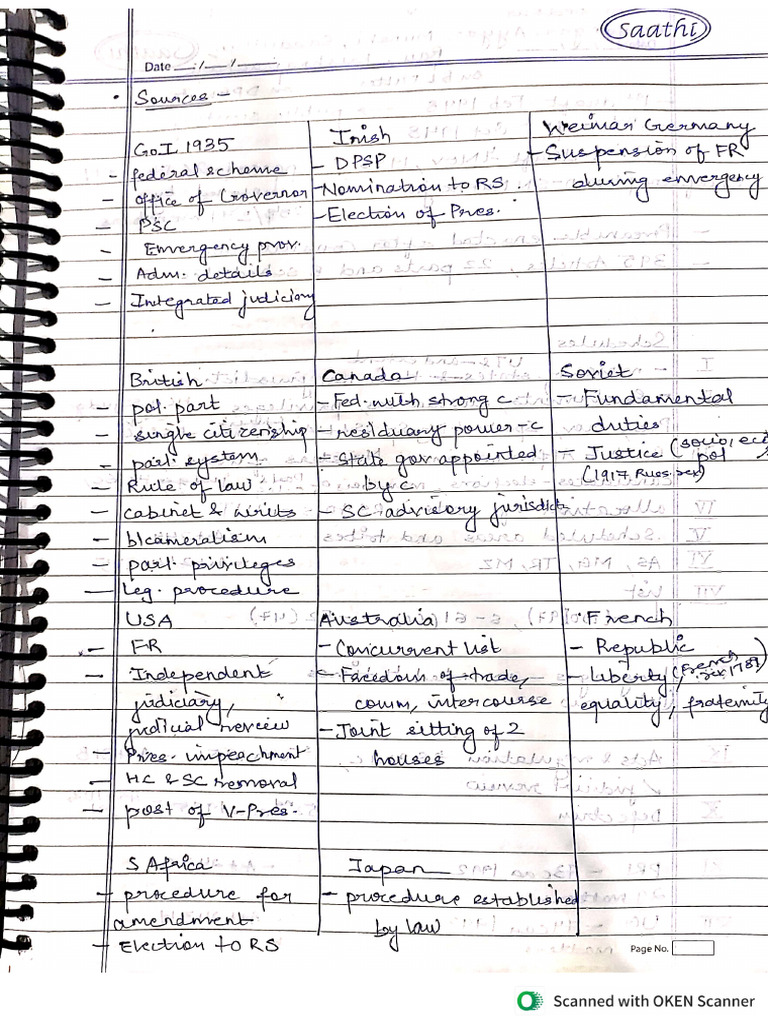 saathi
Date __/__/____
• Sources -
GoI 1935
- federal scheme
- office of Governor
- PSC
- Emergency prov.
- Adm. details
- Integrated judiciary
Irish
- DPSP
- Nomination to RS.
- Election of Pres.
Weimar Germany
- Suspension of FR
during emergency
British
- pol. part
- single citizenship
- parl. system
- Rule of law
- cabinet & writs
- bicameralism
- parl. privileges
- Leg. procedure
Canada
- Fed. with strong c
- residuary power - c
- State gov appointed
by c
- SC advisory jurisdictn
Soviet
- Fundamental
duties
- Justice (socio, eco
pol
(1917 Russ. rev)
USA
- FR
- Independent
judiciary,
judicial review
- Pres. impeachment
- HC & SC removal
- post of V-Pres.
Australia
- Concurrent list
- Freedom of trade,
comm, intercourse
- Joint sitting of 2
houses
French
- Republic
- Liberty, (French
rev 1789)
equality, fraternity
S Africa
- procedure for
amendment
- Election to RS
Japan
- procedure established
by law
Page No.
Scanned with OKEN Scanner